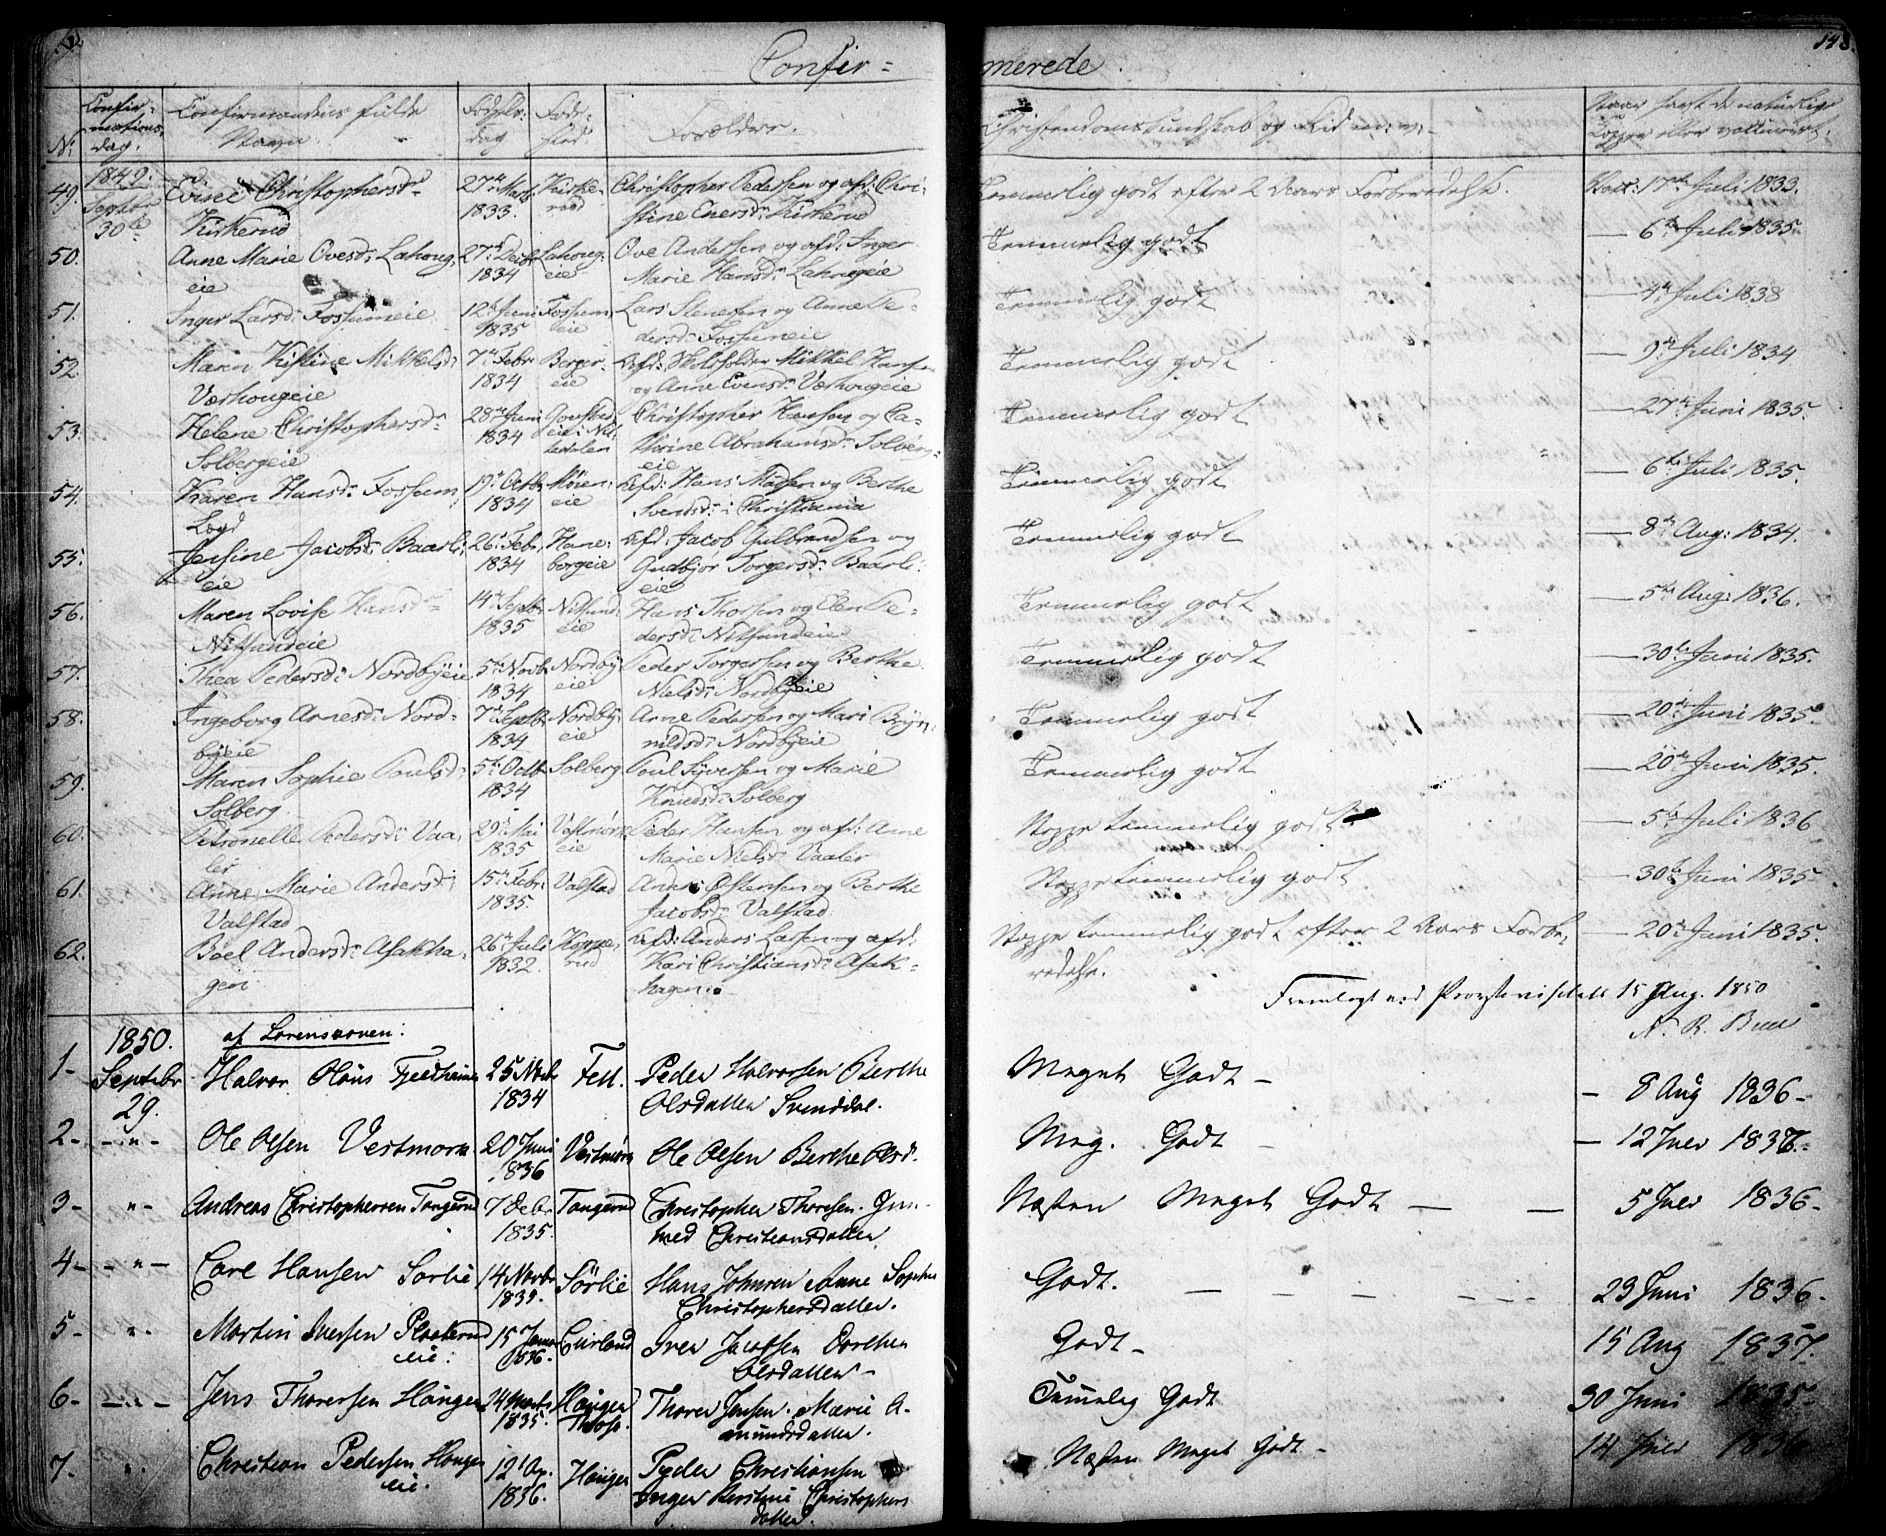 Confir=
merede.
148.
No
Confir=
mations
dag.
Confirmandens fulde
Navn
Fødsels=
dag
Føde=
sted.
Forældre.
Christendomskundskab og Flid m: v:
Naar havt de naturlige
Kopper eller vaccineret.
1849.
Septbr
30te
49. Christophersd:
Kirkerud
27de Marts
1833.
Kirke=
rud
Christopher Pedersen og afd: Chri=
stine Enersd: Kirkerud
Temmerlig godt efter 2 Aars Forberedelse.
Vacc: 17de Juli 1833.
50. Anne Marie Ovesd: Lahoug,
eie
27de Decbr
1834
Lahoug,
eie
Ove Andersen og afd: Inger
Marie Hansd: Lahougeie
Temmerlig godt
— 6te Juli 1835.
51. Inger Larsd: Fossumeie
12te Juni
1835
Fossum,
eie
Lars Stenersen og Anne Pe=
dersd: Fossumeie
Temmerlig godt
— 4de Juli 1838
52. Maren Kistine Mikkelsd:
Værhougeie
7de Febr
1834
Berger=
eie
Afd: Mikkel Hansen
og Anne Evensd: Værhougeie
Temmerlig godt
— 9de Juli 1834
53. Helene Christophersd:
Solbergeie
28de Juni
1834
eie i Nit,
tedalen
Christopher Hansen og Ca=
thrine Abrahamsd: Solberg=
eie
Temmerlig godt
— 27de Juni 1835.
54. Karen Hansd: Fossum,
Lægd
19de Octbr
1834
Møien=
eie
Afd: Hans Madsen og Berthe
Svendsd: i Christiania
Temmerlig godt
— 6te Juli 1835.
55. Jensine Jacobsd: Baarli,
eie
26de Febr,
1834
Hane=
borgeie
Afd: Jacob Gulbrandsen og
Gudbjor Torgersd: Baarli=
eie
Temmerlig godt
— 8de Aug: 1834.
56. Maren Lovise Hansd:
Nitsundeie
14de Septbr
1835
Nitsund,
eie
Hans Thorsen og Elen Pe=
dersd: Nitsundeie
Temmerlig godt
— 5te Aug: 1836.
57. Thea Pedersd: Nordbyeie
5te Novbr
1834
Nordby,
eie
Peder Torgersen og Berthe
Nielsd: Nordbyeie
Temmerlig godt
— 30te Juni 1835.
58. Ingeborg Arnesd: Nord=
byeie
7de Septbr
1834
Nordby,
eie
Arne Pedersen og Mari Bryn,
nildsd: Nordbyeie
Temmerlig godt
— 20de Juni 1835.
59. Maren Sophie Poulsd:
Solberg
5te Octbr
1834
Solberg
Poul Syversen og Marie
Knudsd: Solberg
Temmerlig godt
— 20de Juni 1835.
60. Petronelle Pedersd: Vaa,
ler
29de Mai
1835
Vestmorn
eie
Peder Hansen og afd: Anne
Marie Nielsd: Vaaler
Neppe temmerlig godt
— 5te Juli 1836
61. Anne Marie Andersd:
Valstad
15de Febr
1835.
Valstad
Anders Østensen og Berthe
Jacobsd: Valstad
Neppe temmerlig godt
— 30te Juni 1835
62. Boel Andersd: Asakha,
gen
26de Juli
1832.
Koppe,
rud
Afd: Anders Larsen og afd:
Kari Christiansd: Asak=
hagen.
Neppe temmerlig godt efter 2 Aars Forbe,
redelse.
— 20de Juni 1835.
Fremlagt ved Provstevisitats 15 Aug. 1850
N. R. Bull
1850.
af Lørenskoven:
1- Septebr
29.
Halvor Olaus Fjeldheim
25 Novbr
1834
Fell.
Peder Halvorsen Berthe
Olsdatter Svenddal.
Meget Godt —
— 8 Aug 1836 -
2- - " - Ole Olsen Vestmorn
20 Juni
1836
Vestmorn
Ole Olsen Berthe Olsd.
Meg. Godt —
— 12 Julv 1838.-
3- " - Andreas Christophersen Tangerud
7 Decbr
1835.
Tangerud
Christopher Thoresen. Gun=
hild Christiansdatter
Næsten Meget Godt — —
5 Julv 1836 -
4- - " - Carl Hansen Sørlie
14 Novbr
1835.
Sørlie
Hans Johnsen Anne Sophie
Christophersdatter.
Godt. — — — — —
23 Juni 1836 -
5- " - Martin Iversen
eie:
15 Janua
1836 -
Curland
Iver Jacobsen Dorthea
Olsdatter -
Godt -
15 Aug 1837.
6- Jens Thorersen Hånger
24 Marts
1835.
Hånger
Thorer Jensen. Marie A=
mundsdatter.
Tummelig Godt
30 Juni 1835-
7- " Christian Pedersen Honger
eie.
12 Ap.
1836.
Hånger
Peder Christiansen
Inger Kerstine Christophers
datter.
Næsten Meget Godt -
14 Julv 1836